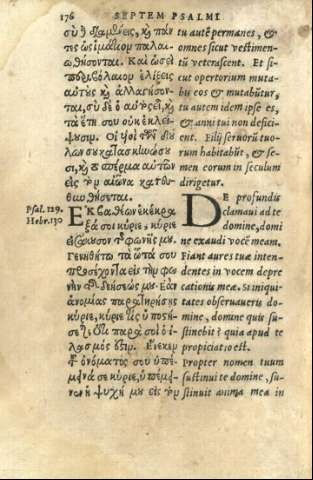 176 SEPTEM PSALMI
σὺ δὲ διαμένεις, καὶ πάν
τες ὡς ἱμάτιον παλαι-
ωθήσονται. Καὶ ὡσεὶ
περιβόλαιον ἑλίξεις
αὐτοὺς καὶ ἀλλαγήσον-
ται, σὺ δὲ ὁ αὐτὸς εἶ, καὶ
τὰ ἔτη σου οὐκ ἐκλεί-
ψουσιν. Οἱ υἱοὶ τῶν δού
λων σου κατασκηνώσου
σι, καὶ τὸ σπέρμα αὐτῶν
εἰς τὸν αἰῶνα κατευ-
θυνθήσεται.
Psal. 129.
Hebr. 130
ἘΚ βαθέων ἐκέκρα
ξά σοι κύριε, κύριε
εἰσάκουσον τῆς φωνῆς μου.
Γενηθήτω τὰ ὦτά σου
προσέχοντα εἰς τὴν φω
νὴν τῆς δεήσεώς μου. Ἐὰν
ἀνομίας παρατηρήσῃς
κύριε, κύριε τίς ὑποστή-
σεται; ὅτι παρὰ σοὶ ὁ ἱ-
λασμός ἐστιν. Ἕνεκεν
τοῦ ὀνόματός σου ὑπέ-
μεινά σε κύριε, ὑπέμει-
νεν ἡ ψυχή μου εἰς τὸν
tu autē permanes, &
omnes sicut vestimen-
tū veterascent. Et si-
cut opertorium muta-
bis eos & mutabūtur,
tu autem idem ipse es,
& anni tui non defici-
ent. Filij seruorū tuo-
rum habitabūt, & se-
men eorum in seculum
dirigetur.
DE profundis
clamaui ad te
domine, domi
ne exaudi vocē meam.
Fiant aures tuæ inten-
dentes in vocem depre
cationis meæ. Si iniqui
tates obseruaueris do-
mine, domine quis su-
stinebit? quia apud te
propiciatio est.
Propter nomen tuum
sustinui te domine, su-
stinuit anima mea in